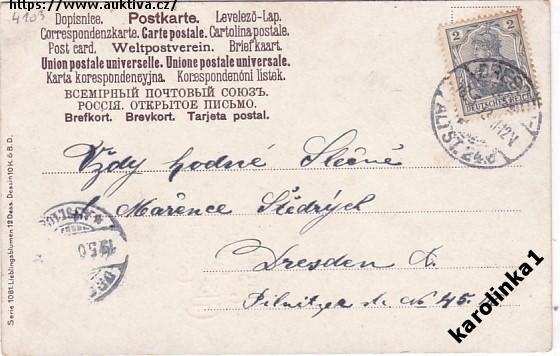 https://www.auktiva.cz/
4103
Dopisnice. Postkarte. Levelező-Lap.
Correspondenzkarte. Carte postale. Cartolina postale.
Post card. Weltpostverein. Brefkaart.
Union postale universelle. Unione postale universale.
Karta korespondencyjna. Korespondenční lístek.
ВСЕМІРНЫЙ ПОЧТОВЫЙ СОЮЗЪ.
РОССІЯ. ОТКРЫТОЕ ПИСЬМО.
Brefkort. Brevkort. Tarjeta postal.
2 2
DEUTSCHES REICH
DRESDEN
ALTST.
Vždy hodné Slečně
Mařence Štědrých
Dresden A.
Pilnitzer
No 45
Serie 1081. Lieblingsblumen. 12 Dess. Dessin 10 K. & B. D.
karolinka1